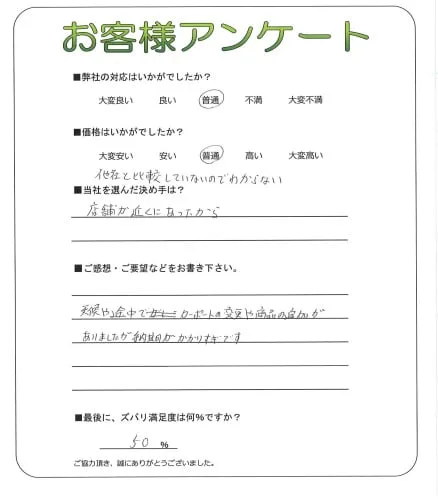 お客様アンケート
■弊社の対応はいかがでしたか？
大変良い 良い 普通 不満 大変不満
■価格はいかがでしたか？
大変安い 安い 普通 高い 大変高い
他店と比較していないのでわからない
■当社を選んだ決め手は？
店舗が近くにあったから
■ご感想・ご要望などをお書き下さい。
天候や途中で カーポートの変更や商品の追加が
ありましたが納期がかかりすぎです
■最後に、ズバリ満足度は何％ですか？
50 %
ご協力頂き、誠にありがとうございました。